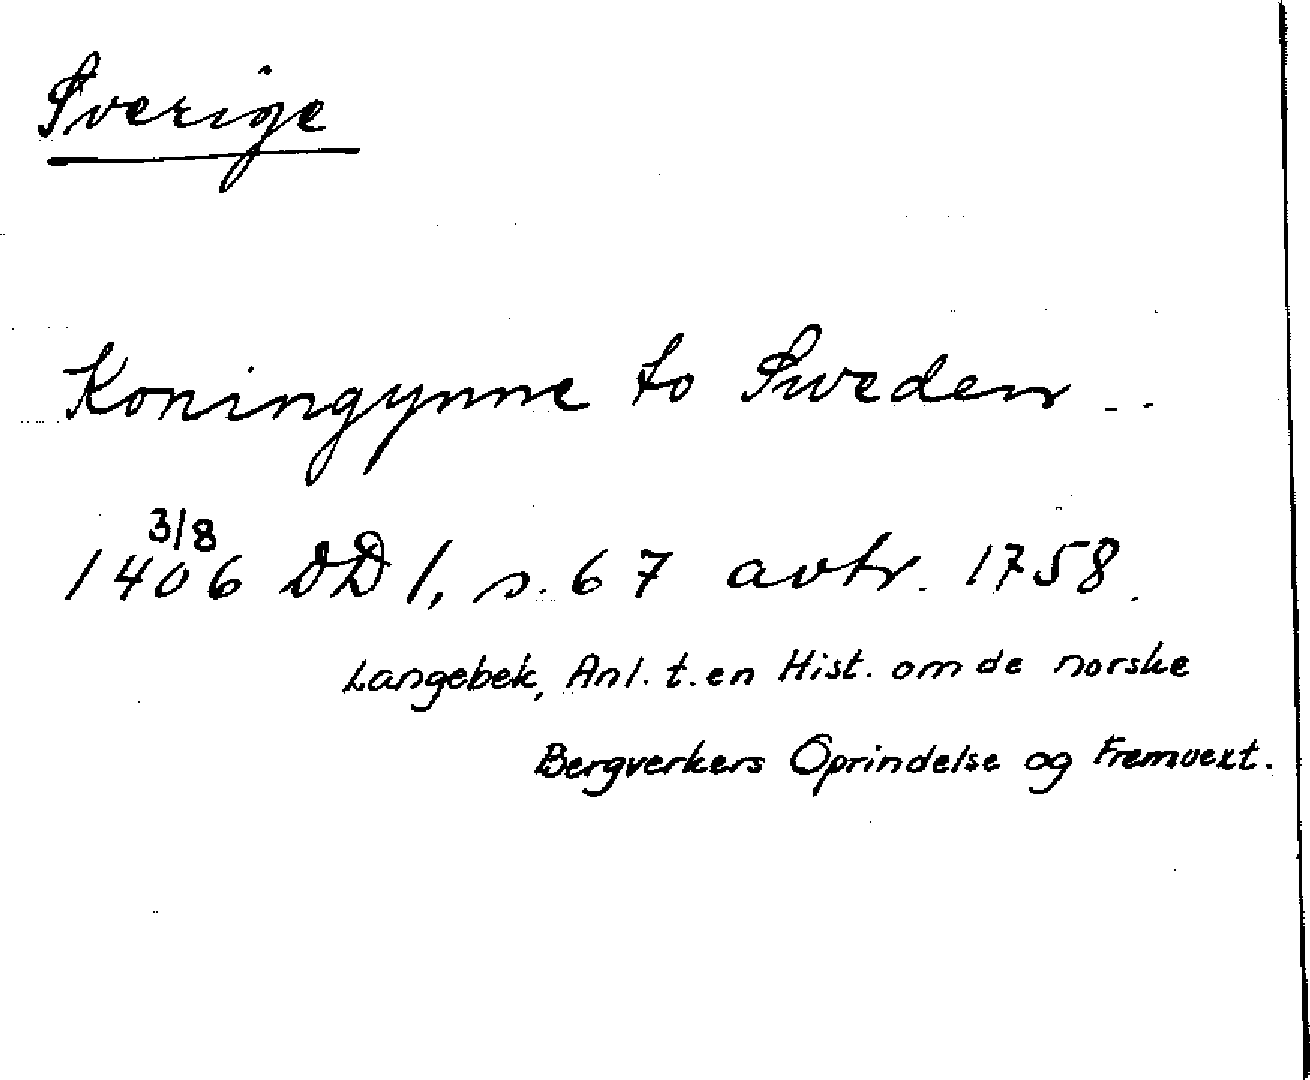 Sverige
Koningynne to Sweden - -
3/8
1406 DD 1, s. 67 avtr. 1758.
Langebek, Anl. t. en Hist. om de norske
Bergverkers Oprindelse og Fremvext.